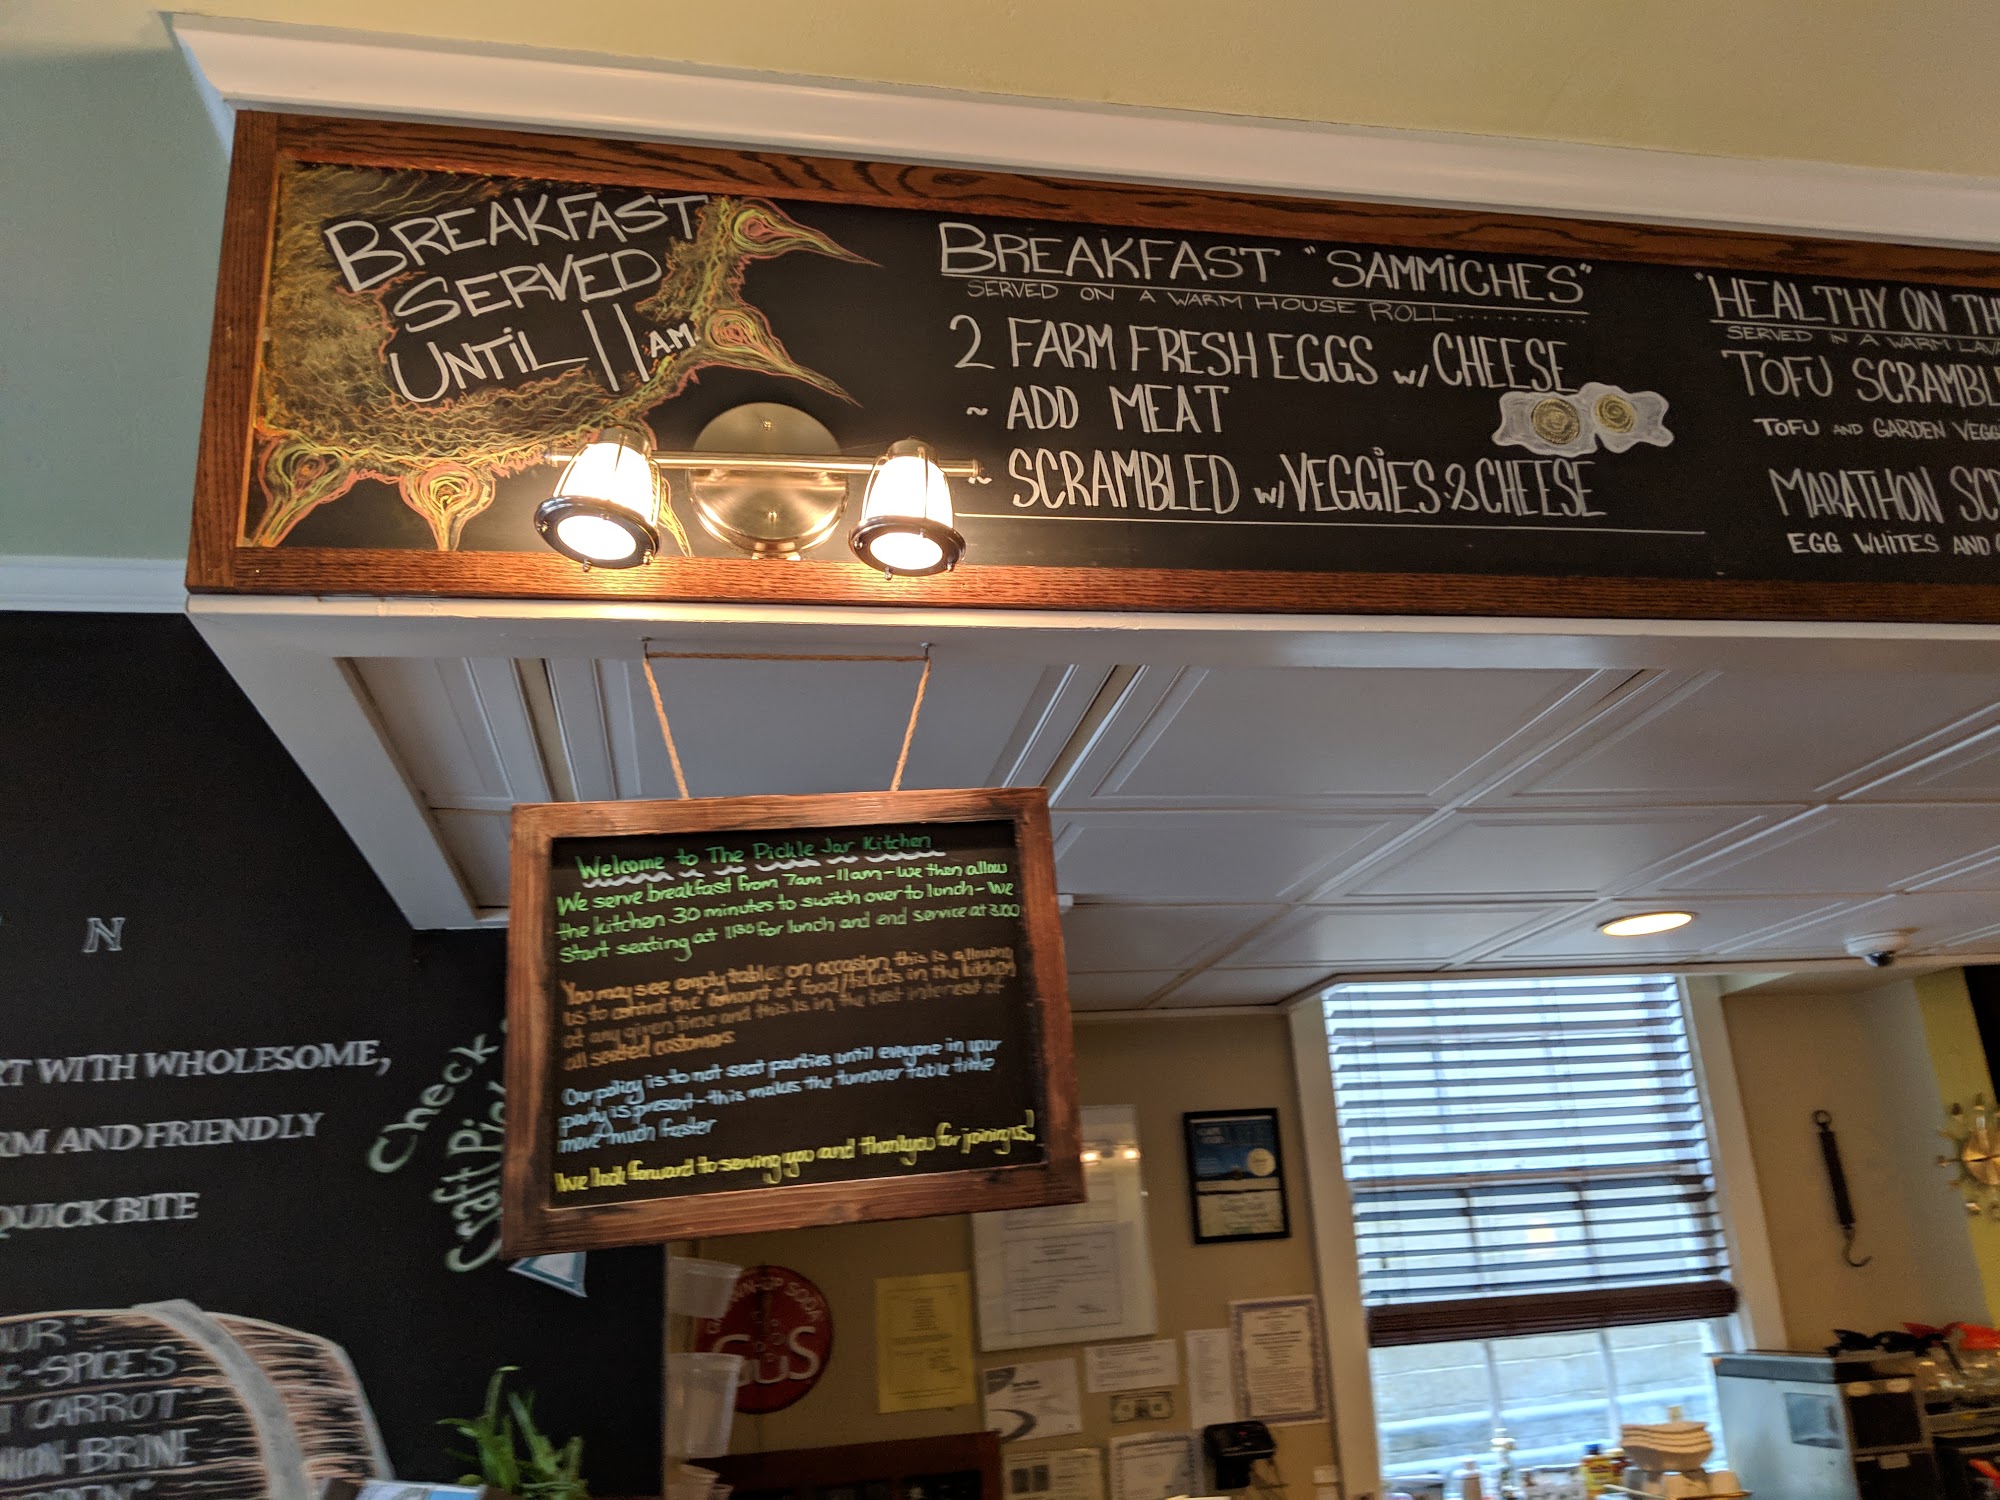 BREAKFAST
SERVED
UNTIL 11 A.M.
BREAKFAST "SAMMICHES"
SERVED ON A WARM HOUSE ROLL..........
2 FARM FRESH EGGS w/ CHEESE
~ ADD MEAT
~ SCRAMBLED w/ VEGGIES & CHEESE
"HEALTHY ON TH
SERVED IN A WARM LAVA
TOFU SCRAMBL
TOFU AND GARDEN VEGG
MARATHON SC
EGG WHITES AND
Welcome to The Pickle Jar Kitchen
We serve breakfast from 7am-11am-we then allow
the kitchen 30 minutes to switch over to lunch-We
Start seating at 1130 for lunch and end service at 3:00
You may see empty tables on occasion, this is allowing
us to control the amount of food/tickets in the kitchen
at any given time and this is in the best interest of
all seated customers.
Our policy is to not seat parties until everyone in your
party is present-this makes the turnover table time
move much faster
We look forward to serving you and thankyou for joining us!
N
RT WITH WHOLESOME,
RM AND FRIENDLY
QUICK BITE
Check
Craft Pick
OUR"
C-SPICES
CARROT"
NION-BRINE
GROWN-UP SODA
GUS